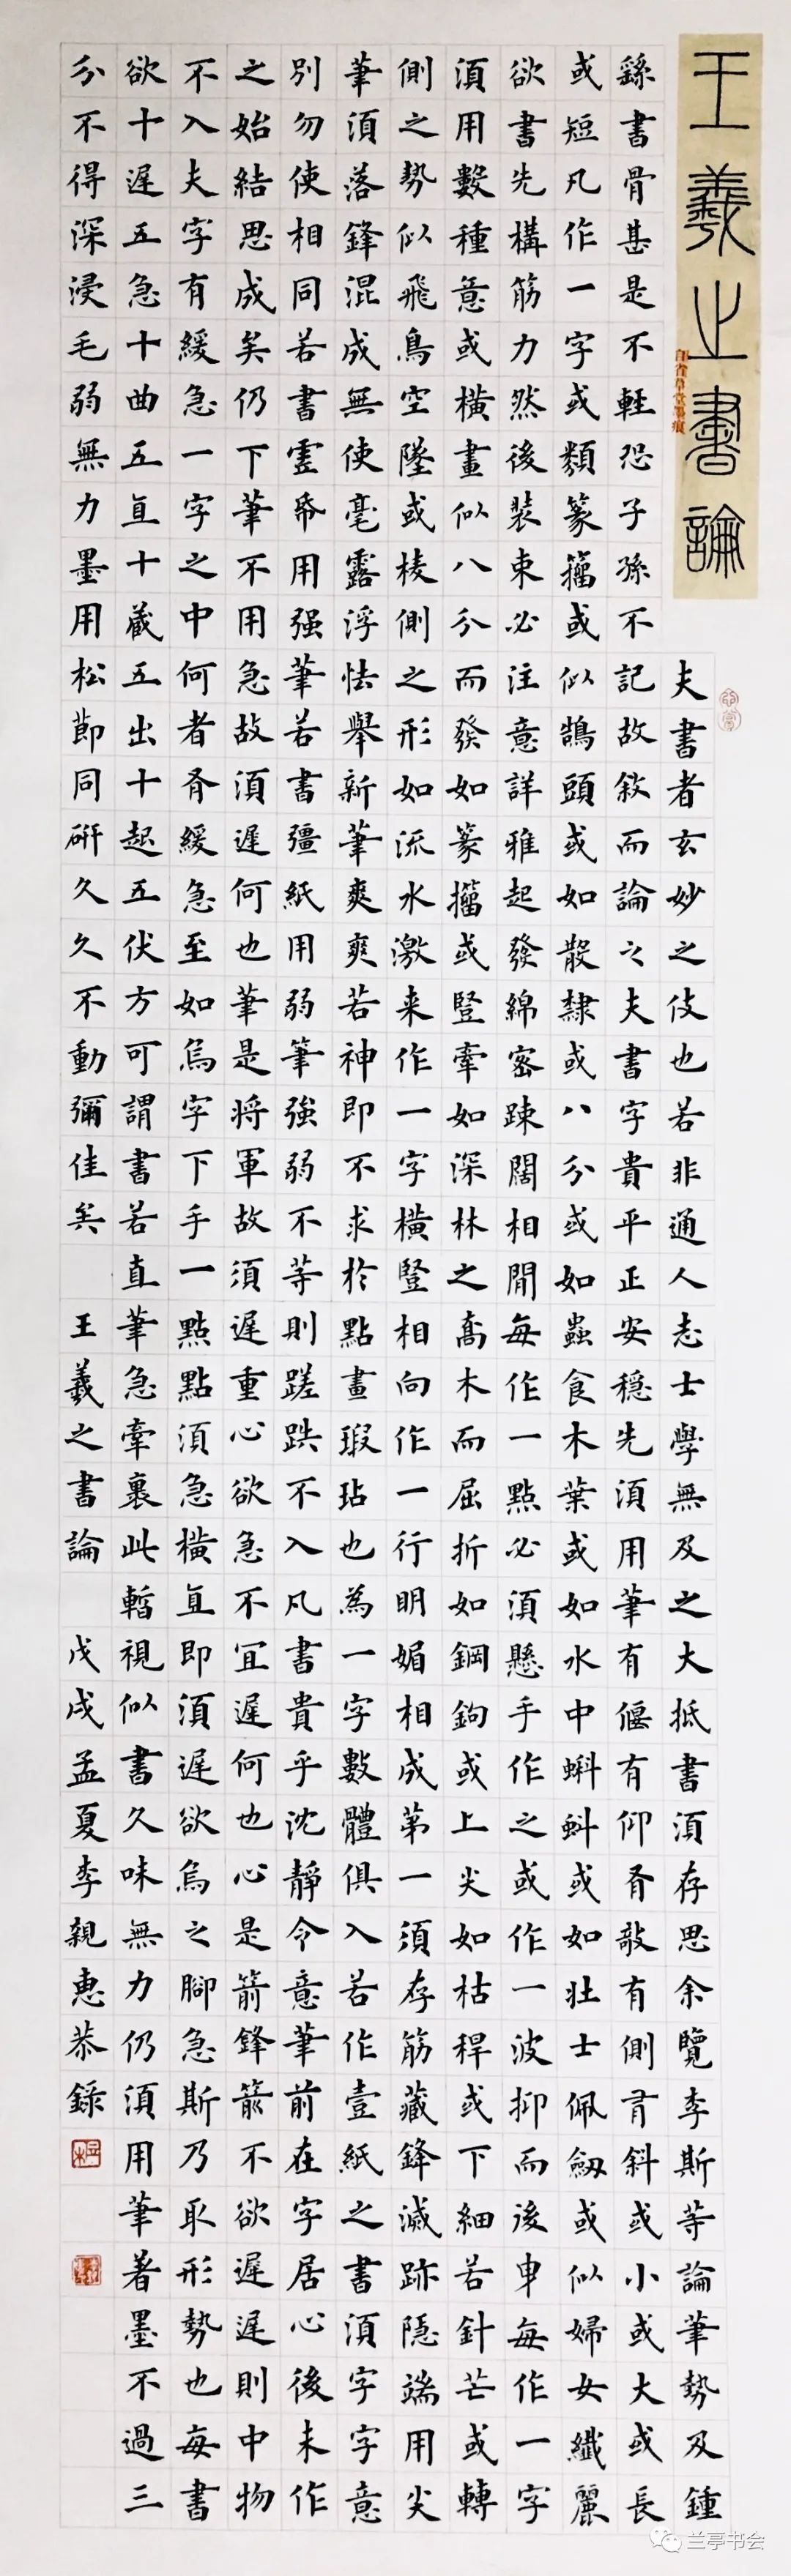 王羲之書論
夫書者玄妙之伎也若非通人志士學無及之大抵書須存思余覽李斯等論筆勢及鍾
繇書骨甚是不輕恐子孫不記故敘而論之夫書字貴平正安穩先須用筆有偃有仰有敧有側有斜或小或大或長
或短凡作一字或類篆籀或似鵠頭或如散隸或八分或如蟲食木葉或如水中蝌蚪或如壯士佩劔或似婦女纖麗
欲書先構筋力然後裝束必注意詳雅起發綿密踈闊相間每作一點必須懸手作之或作一波抑而後申每作一字
須用數種意或橫畫似八分而發如篆籀或豎牽如深林之喬木而屈折如鋼鉤或上尖如枯稈或下細若針芒或轉
側之勢似飛鳥空墜或棱側之形如流水激来作一字橫豎相向作一行明媚相成第一須存筋藏鋒滅跡隱端用尖
筆須落鋒混成無使毫露浮怯舉新筆爽爽若神即不求於點畫瑕玷也為一字數體俱入若作壹紙之書須字字意
別勿使相同若書虛帋用强筆若書彊紙用弱筆強弱不等則蹉跌不入凡書貴乎沈靜令意筆前在字居心後未作
之始結思成矣仍下筆不用急故須遲何也筆是将軍故須遲重心欲急不宜遲何也心是箭鋒箭不欲遲遲則中物
不入夫字有緩急一字之中何者有緩急至如烏字下手一點點須急橫直即須遲欲烏之腳急斯乃取形勢也每書
欲十遲五急十曲五直十藏五出十起五伏方可謂書若直筆急牽裏此暫視似書久味無力仍須用筆著墨不過三
分不得深浸毛弱無力墨用松節同研久久不動彌佳矣 王羲之書論 戊戌孟夏李親惠恭錄
兰亭书会